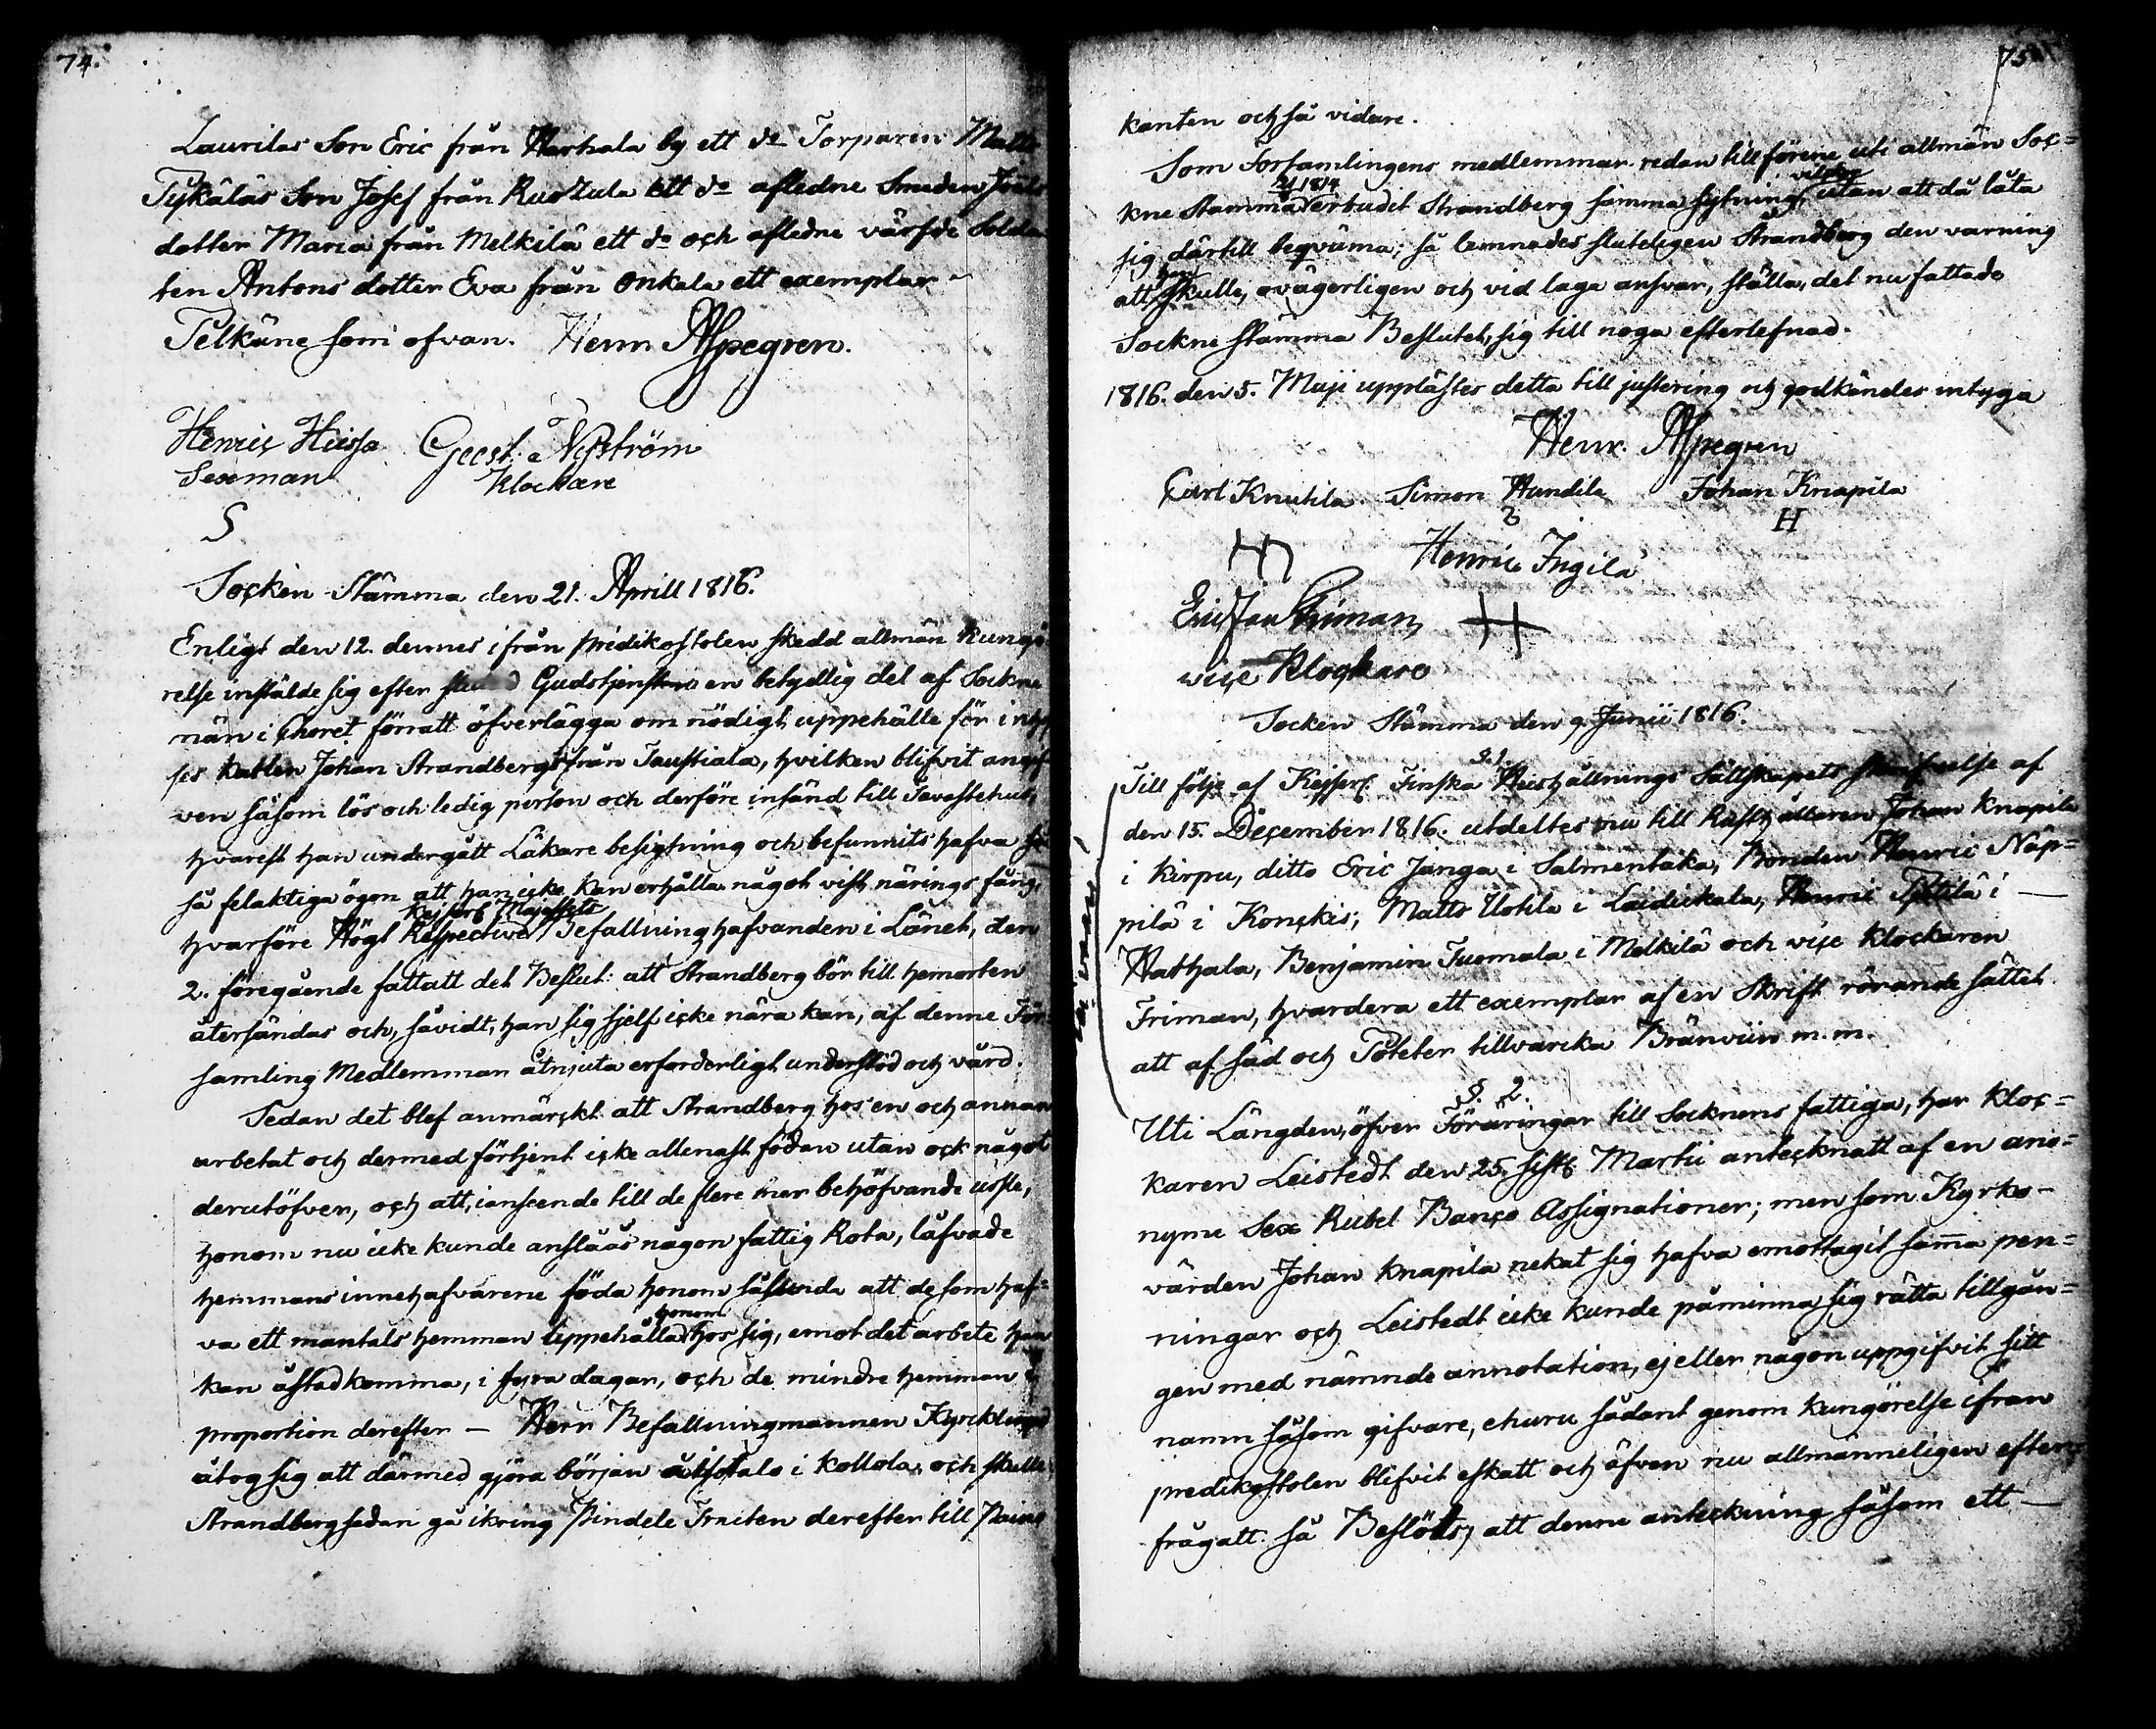 74.
Laurilas Son Eric från Harhala by ett do Torparen Matts
Tykäläs Son Josef från Ruokula ett do afledne Smeden Joels
dotter Maria från Melkilä ett do och afledne värfde Solda
ten Antons dotter Eva från Onkala ett exemplar
Pelkäne som ofvan. Henr Aspegren.
Henric Heissa
Sexman
Nyström
Klockare
Socken Stämma den 21. Aprill 1816.
Enligt den 12. dennes ifrån predikostolen skedd allmän kungö
relse instälde sig efter Gudstjensten en betydlig del af Sockne
män i Choret förratt öfverlägga om nödigt uppehälle för inhy
ses karlen Johan Strandberg från Taustiala, hvilken blifvit angif
ven såsom lös och ledig person och derföre insänd till Tavastehus,
hvarest han undergått Läkare besigtning och befunnits hafva
så felaktiga ögon att han icke kan erhålla något vist närings fång,
hvarföre Högl Respective Kejserl Majestets Befallning hafvanden i Länet, den
2. föregående fattatt det Beslut: att Strandberg bör till hemorten
återsändas och, såvidt, han sig sjelf icke nära kan, af denne För
samling Medlemmar åtnjuta erforderligt understöd och vård.
Sedan det blef anmärckt att Strandberg hos en och annan
arbetat och dermed förtjent icke allenast födan utan ock något
derutöfver, och att, i anseende till de flere mer behöfvande usle,
honom nu icke kunde anslåås någon fattig Rota, låfvade
hemmans innehafvarene föda honom således att de som haf=
va ett mantals hemman uppehålla honom hos sig, emot det arbete han
kan åstadkomma, i fyra dagar, och de mindre hemman i
proportion derefter — Herr Befallningmannen Kyrcklund
åtog sig att därmed gjöra början å i Kollola, och skulle
Strandberg sedan gå ikring Pindele Traiten derefter till Paino
75
kanten och så vidare.
Som Församlingens medlemmar redan tillförene uti allmän Soc=
kne Stämma 2/ 1814 erbudit Strandberg samma sytning, utan att då låta
sig därtill beqväma; så lemnades sluteligen Strandberg den varning
att han skulle, ovägerligen och vid laga ansvar, ställa, det nu fattade
Sockne Stämma Beslutet, sig till noga efterlefnad.
1816. den 5. Maji upplästes detta till justering och godkändes intyga
Henr. Aspegren
Carl Knutila Simon Handila Johan Knapila
H
Henric Ingilä
Eric Jan Friman
vice Klockare
Socken Stämma den 9. Junii 1816.
§ 1
Till följe af Kejserl. Finska Hushållnings Sällskapets skrifvelse af
den 15. December 1816. utdeltes nu till Rusthållaren Johan Knapila
i Kirpu, ditto Eric Janga i Salmentaka, Bonden Henric Näp=
pilä i Konckis; Matts Uotila i Laidickala, Henric i —
Hathala, Benjamin Tuomala i Melkilä och vice Klockaren
Friman, hvardera ett exemplar af en Skrift rörande sättet
att af säd och Poteter tillvarcka Bränvin m.m.
§. 2.
Uti Längden, öfver Föräringar till Socknens fattiga, har Kloc=
karen Leistedt den 25. sistl. Martii antecknatt af en ano=
nyme Sex Rubel Banco Assignationer; men som Kyrko-
värden Johan Knapila nekat sig hafva emottagit sama pen=
ningar och Leistedt icke kunde påminna sig rätta tillgån=
gen med nämnde annotation, ej eller någon uppgifvit sitt
namn såsom gifvare, ehuru sådant genom kungörelse ifrån
predikostolen blifvit eskatt och äfven nu allmänneligen efter=
frågatt. Så Beslöts, att denne anteckning såsom ett —